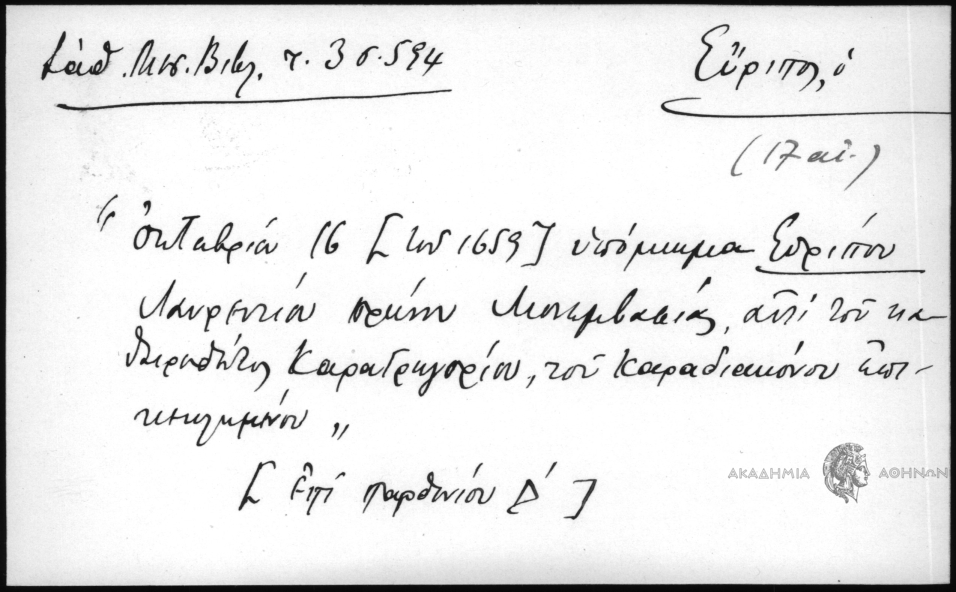 Σάθ. Μεσ. Βιβλ. τ. 3 σ. 594
Εὔριπος, ὁ
(17 αἰ.)
"Ὀκτωβρίου 16 [τοῦ 1659] ὑπόμνημα Εὐρίπου
Λαυρεντίου πρώην Μονεμβασίας, ἀντὶ τοῦ κα-
θαιρεθέντος Καραγρηγορίου, τοῦ Καραδιακόνου ἐπι-
κεκλημένου"
[Ἐπὶ Παρθενίου Δ']
ΑΚΑΔΗΜΙΑ ΑΘΗΝΩΝ